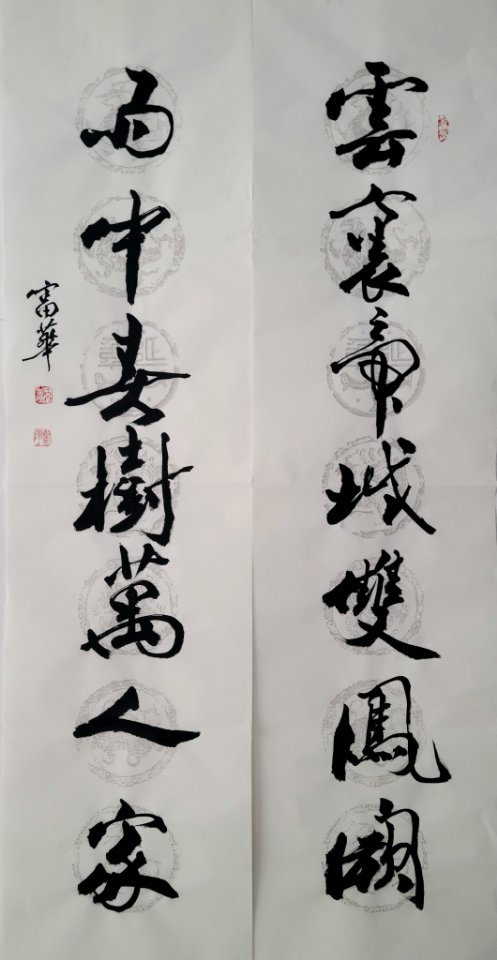 雲裏帝城雙鳳闕
雨中春樹萬人家
富華